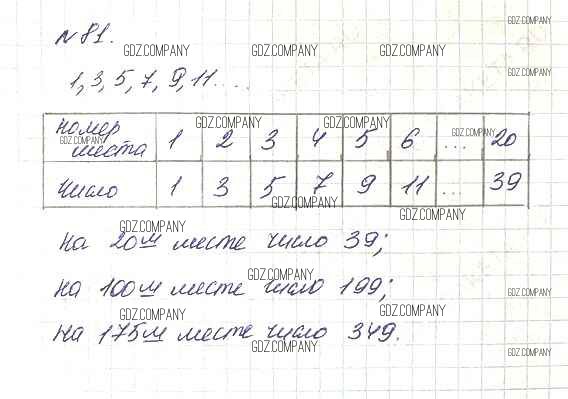 N 81.
GDZ.COMPANY GDZ.COMPANY GDZ.COMPANY GDZ.COMPANY
1, 3, 5, 7, 9, 11....
GDZ.COMPANY
GDZ.COMPANY GDZ.COMPANY GDZ.COMPANY GDZ.COMPANY
номер места 1 2 3 4 5 6 ... 20
число 1 3 5 7 9 11 ... 39
GDZ.COMPANY GDZ.COMPANY
GDZ.COMPANY GDZ.COMPANY
на 20м месте число 39;
GDZ.COMPANY
на 100м месте число 199;
GDZ.COMPANY
GDZ.COMPANY GDZ.COMPANY
на 175м месте число 349.
GDZ.COMPANY GDZ.COMPANY